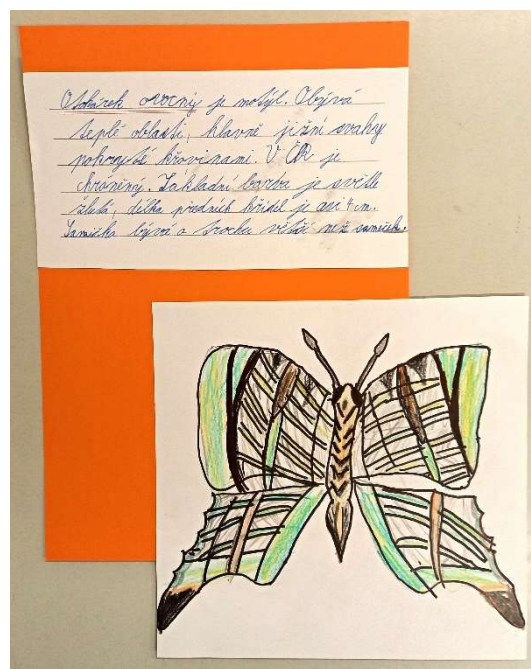 Otakárek ovocný je motýl. Obývá
teplé oblasti, hlavně jižní svahy
pokryté křovinami. V ČR je
chráněný. Základní barva je světle
žlutá, délka předních křídel je asi 4 cm.
Samička bývá o trochu větší než sameček.